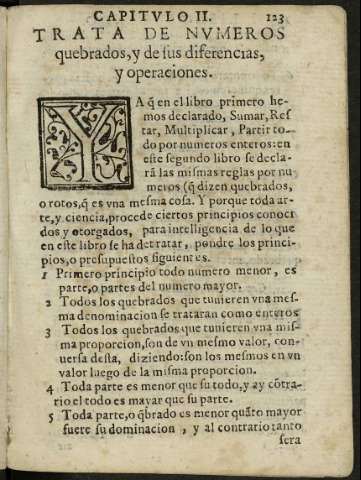 CAPITVLO II. 123
TRATA DE NVMEROS
quebrados, y de sus diferencias,
y operaciones.
YA q̄ en el libro primero he-
mos declarado, Sumar, Res
tar, Multiplicar, Partir to-
do por numeros enteros: en
este segundo libro se decla-
rā las mismas reglas por nu
meros (q̄ dizen quebrados,
o rotos, q̄ es vna mesma cosa. Y porque toda ar-
te, y ciencia, procede ciertos principios conoci
dos y otorgados, para intelligencia de lo que
en este libro se ha de tratar, pondre los princi-
pios, o presupuestos siguientes.
1 Primero principio todo numero menor, es
parte, o partes del numero mayor.
2 Todos los quebrados que tuuieren vna mes-
ma denominacion se trataran como enteros
3 Todos los quebrados que tuuieren vna mis-
ma proporcion, son de vn mesmo valor, con-
uersa desta, diziendo: son los mesmos en vn
valor luego de la misma proporcion.
4 Toda parte es menor que su todo, y ay cōtra-
rio el todo es mayar que su parte.
5 Toda parte, o q̄brado es menor quāto mayor
fuere su dominacion, y al contrario tanto
sera